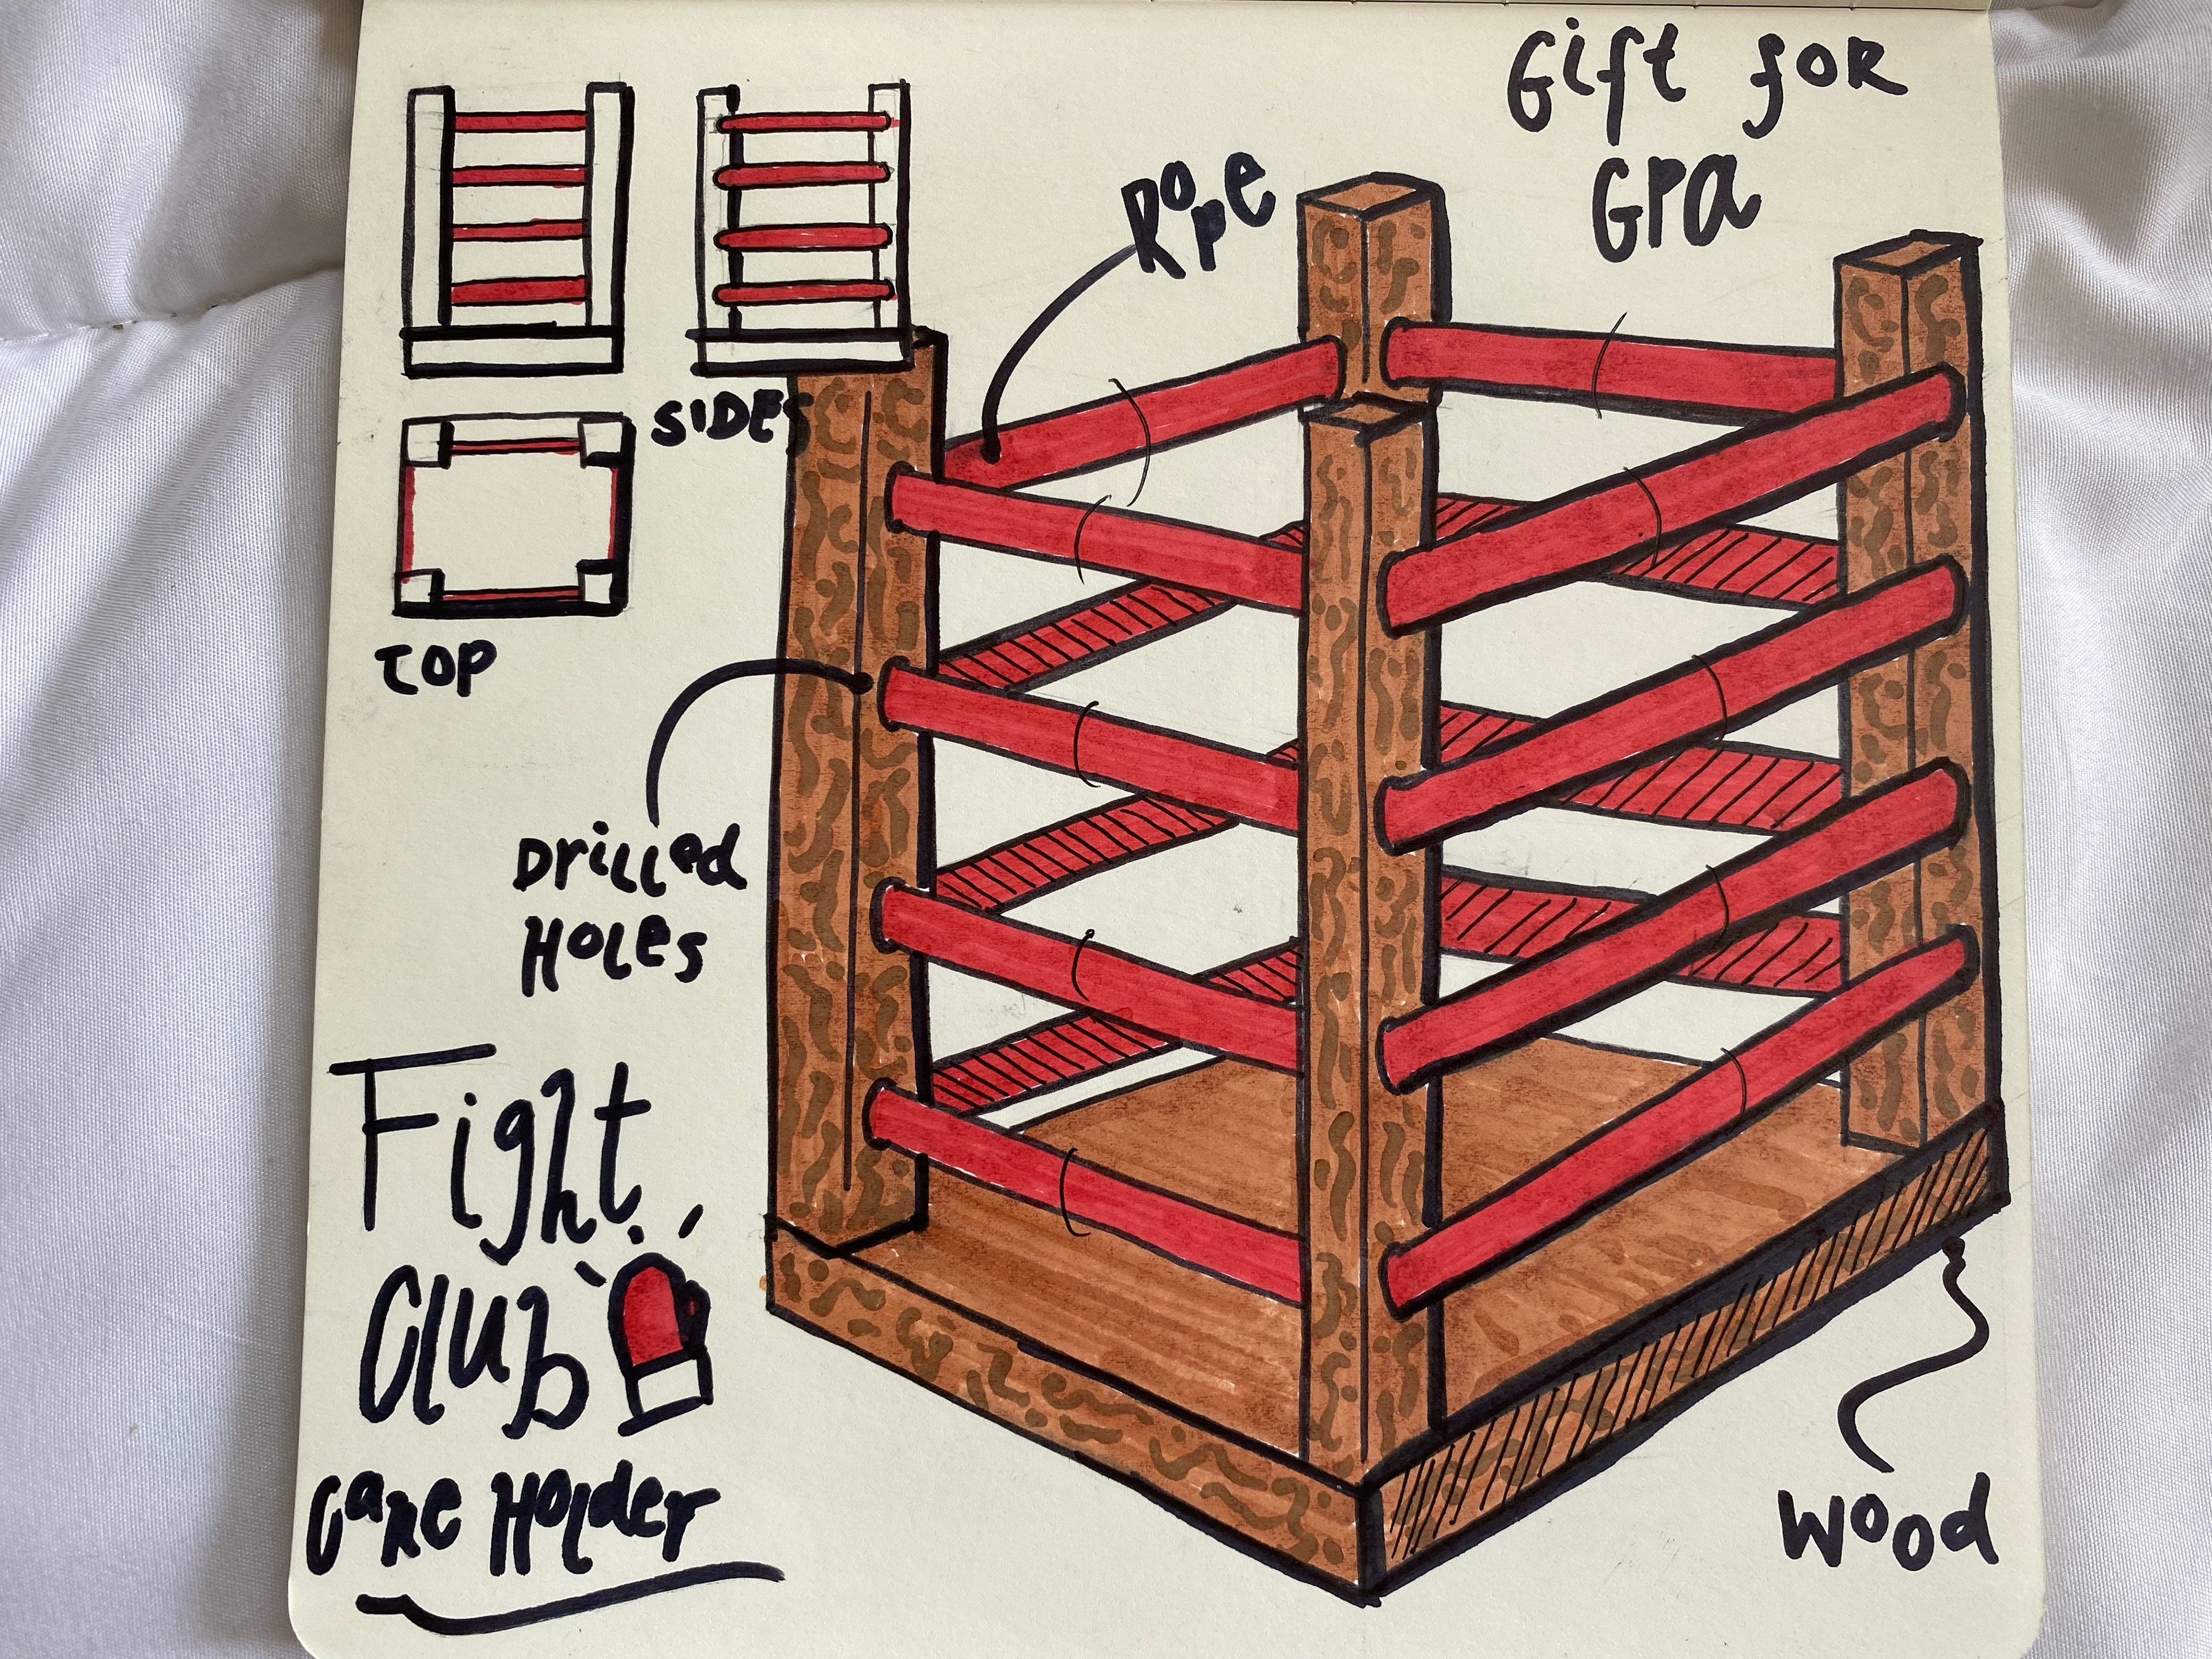 Gift for
GPa
Rope
SIDES
TOP
Drilled
Holes
Fight
Club
Cane Holder
Wood